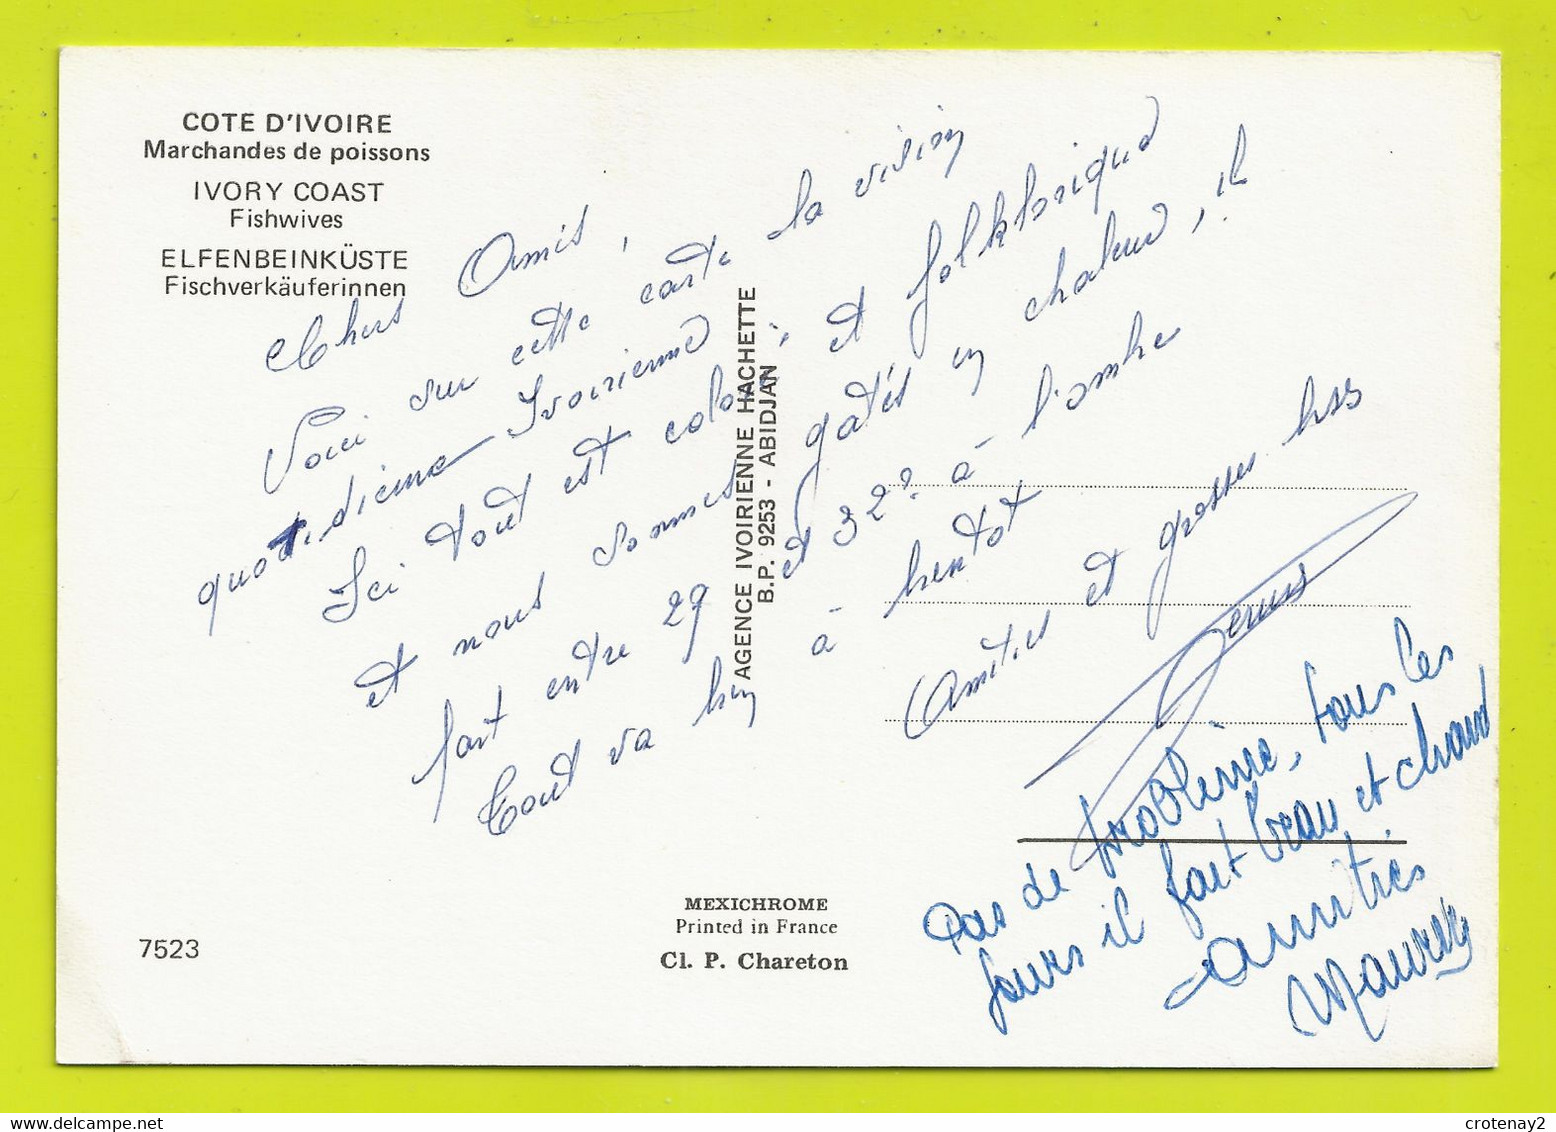 COTE D'IVOIRE
Marchandes de poissons
IVORY COAST
Fishwives
ELFENBEINKÜSTE
Fischverkäuferinnen
Chers Amis,
Voici sur cette carte la vision
quotidienne Ivoirienne
Ici tout est coloré et folklorique
et nous sommes gatés en chaleur, il
fait entre 29 et 32° à l'ombre
Tout va bien à bientot
Amitiés et grosses bises
Pas de problème, tous les
jours il fait beau et chaud
amitiés
AGENCE IVOIRIENNE HACHETTE
B.P. 9253 - ABIDJAN
MEXICHROME
Printed in France
Cl. P. Chareton
7523
crotenay2